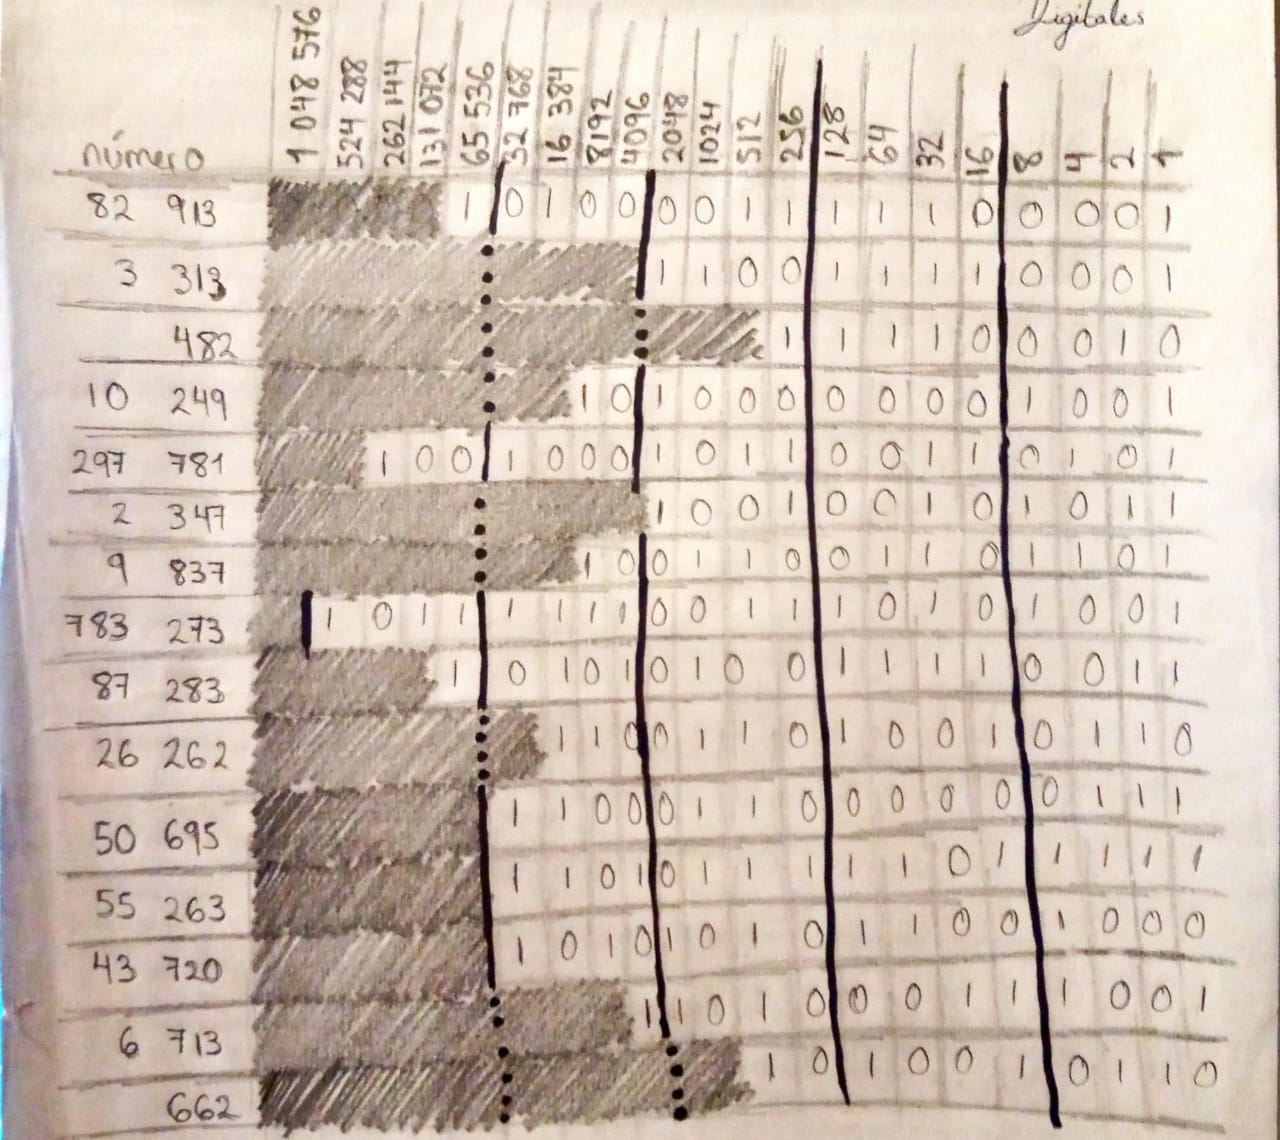 Digitales
número 1 048 576 524 288 262 144 131 072 65 536 32 768 16 384 8192 4096 2048 1024 512 256 128 64 32 16 8 4 2 1
82 913 1 0 1 0 0 0 0 1 1 1 1 1 0 0 0 0 1
3 313 1 1 0 0 1 1 1 1 0 0 0 1
482 1 1 1 1 0 0 0 1 0
10 249 1 0 1 0 0 0 0 0 0 0 1 0 0 1
297 781 1 0 0 1 0 0 0 1 0 1 1 0 0 1 1 0 1 0 1
2 347 1 0 0 1 0 0 1 0 1 0 1 1
9 837 1 0 0 1 1 0 0 1 1 0 1 1 0 1
783 273 1 0 1 1 1 1 1 1 0 0 1 1 1 0 1 0 1 0 0 1
87 283 1 0 1 0 1 0 1 0 0 1 1 1 1 0 0 1 1
26 262 1 1 0 0 1 1 0 1 0 0 1 0 1 1 0
50 695 1 1 0 0 0 1 1 0 0 0 0 0 0 1 1 1
55 263 1 1 0 1 0 1 1 1 1 1 0 1 1 1 1 1
43 720 1 0 1 0 1 0 1 0 1 1 0 0 1 0 0 0
6 713 1 1 0 1 0 0 0 1 1 1 0 0 1
662 1 0 1 0 0 1 0 1 1 0